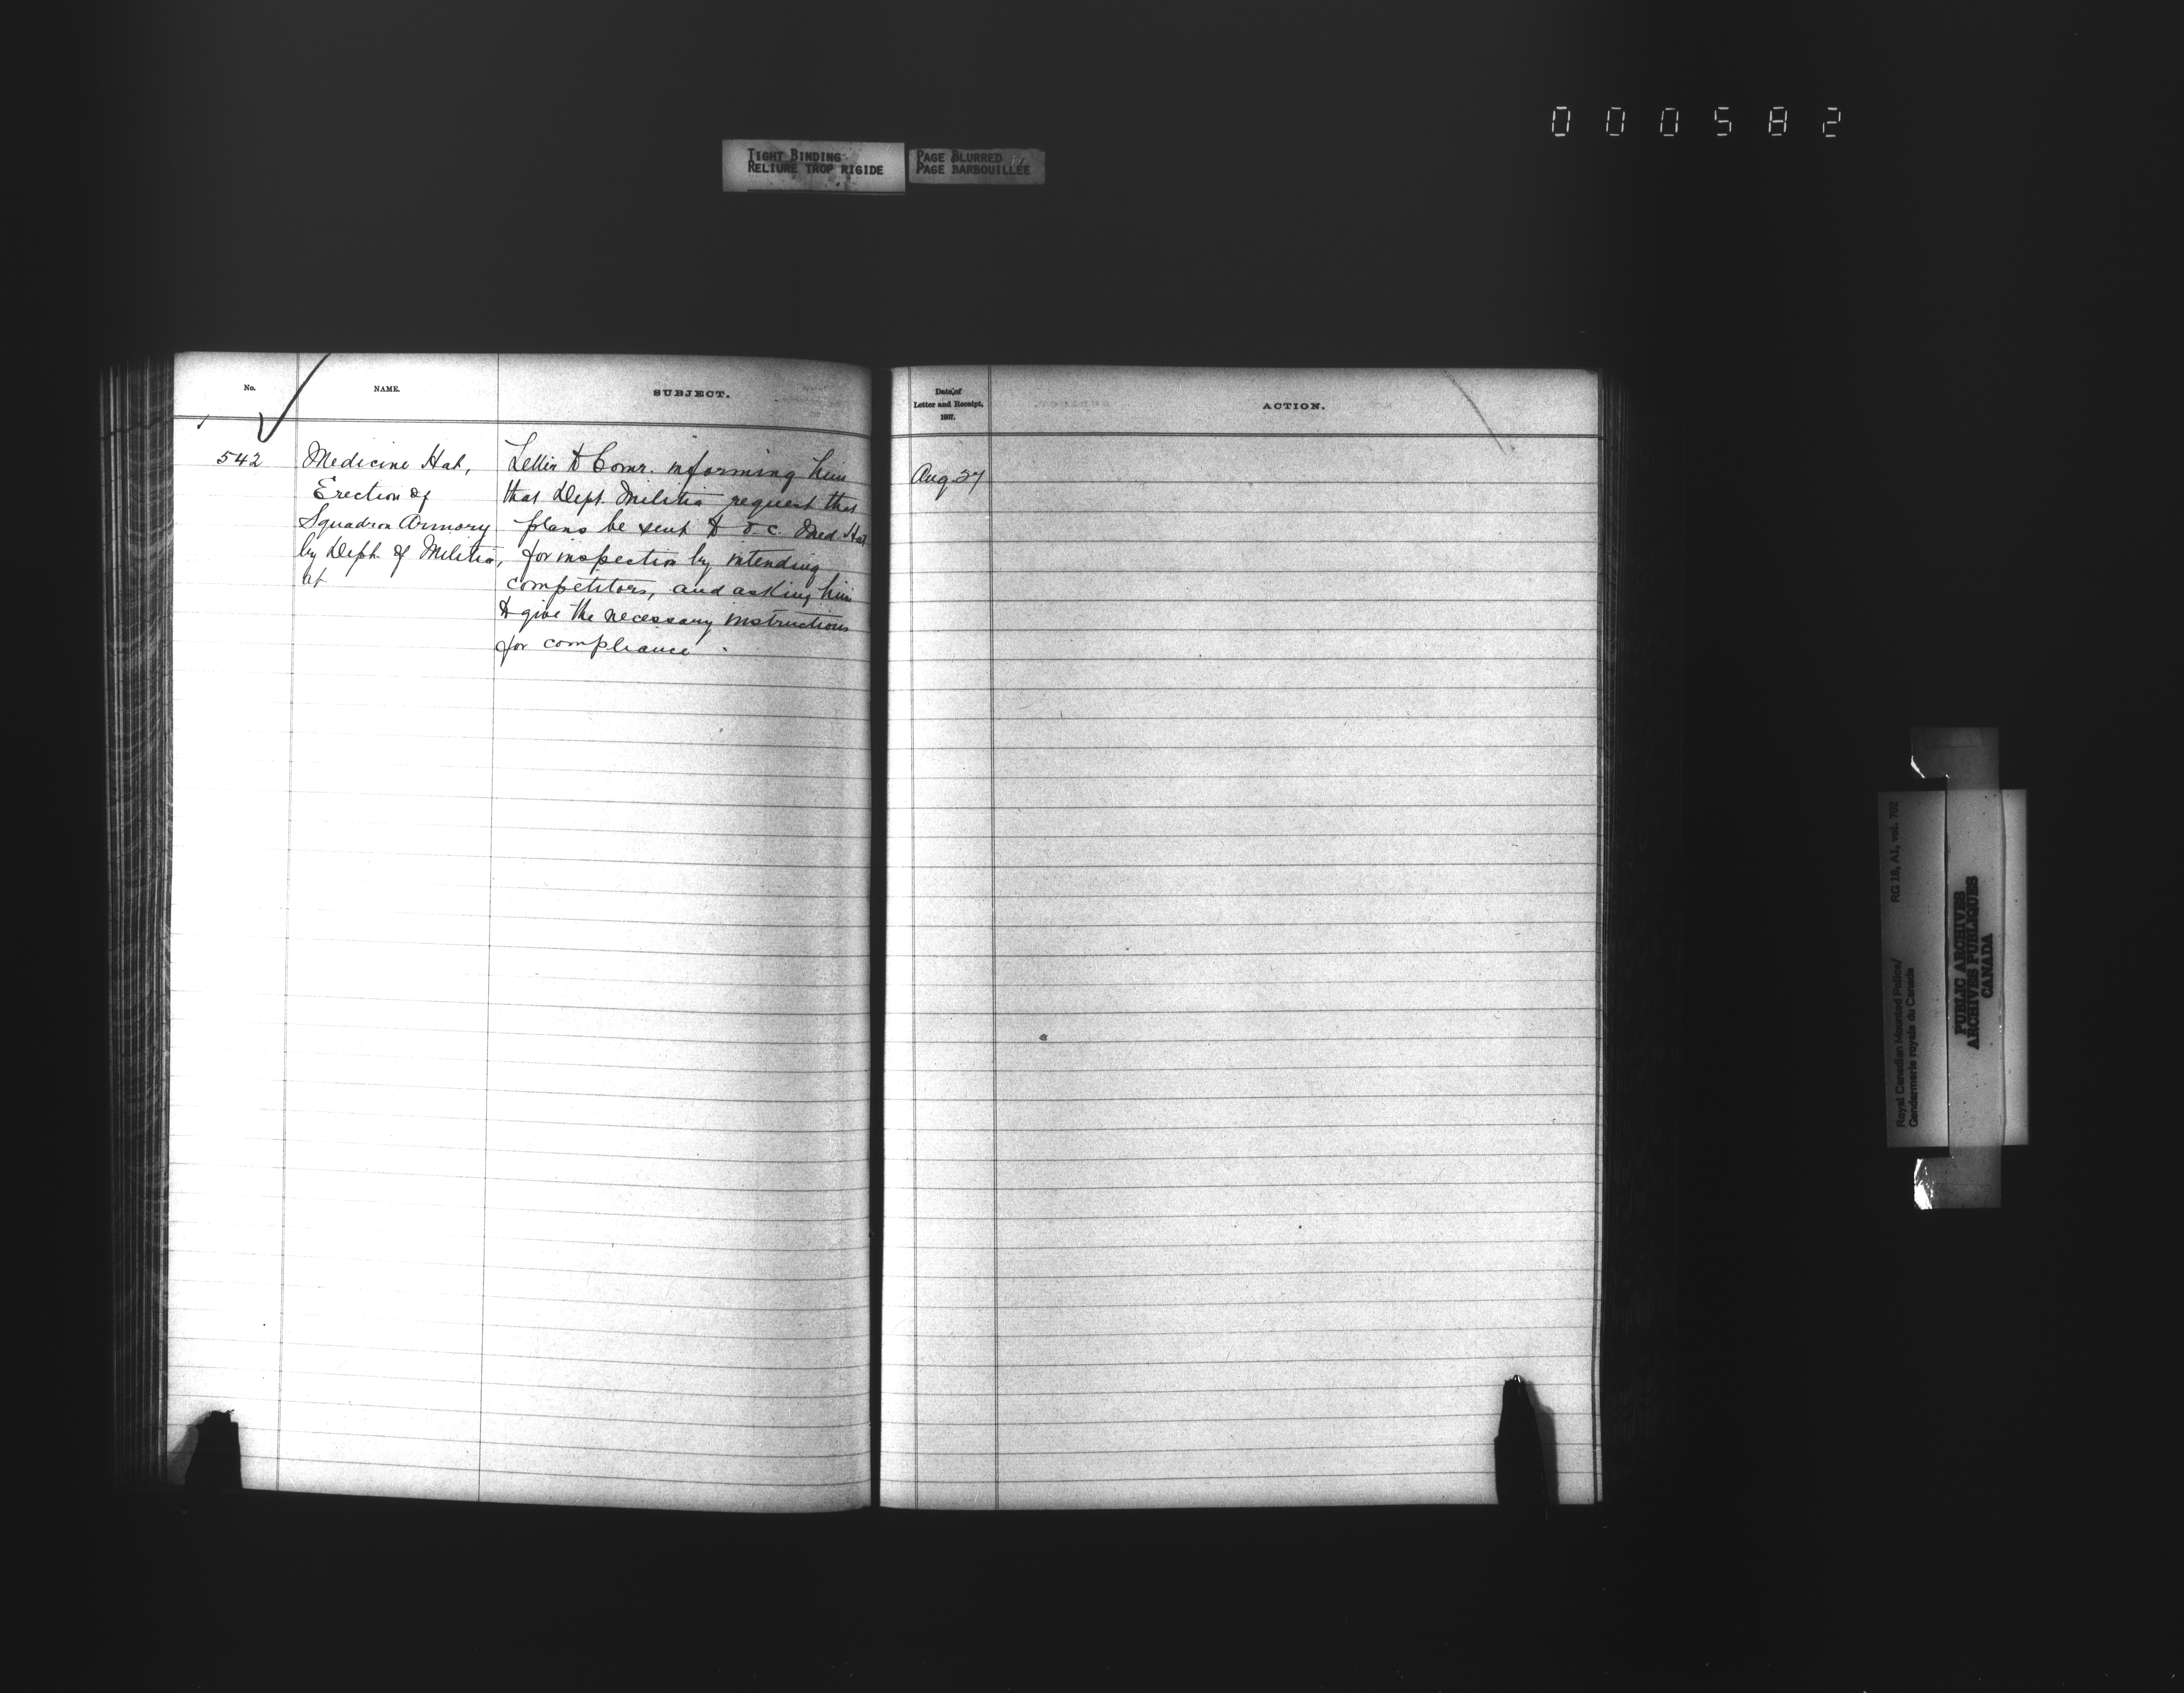 000582
TIGHT BINDING
RELIURE TROP RIGIDE
PAGE BLURRED
PAGE BARBOUILLÉE
No.
NAME.
SUBJECT.
542
Medicine Hat,
Erection of
Squadron Armory
by Dept. of Militia,
at
Letter to Comr. informing him
that Dept. Militia request that
plans be sent to O.C. Med. Hat
for inspection by intending
competitors, and asking him
to give the necessary instructions
for compliance.
Date of
Letter and Receipt,
1907.
ACTION.
Aug. 27
Royal Canadian Mounted Police/
Gendarmerie royale du Canada
RG 18, A1, vol. 702
PUBLIC ARCHIVES
ARCHIVES PUBLIQUES
CANADA